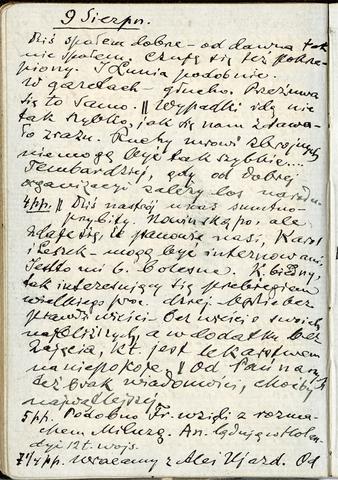 9 Sierpn.
Dziś spałem dobrze – od dawna tak
nie spałem. Czuję się też pokrze-
piony. I Lunia podobnie.
W gazetach – głucho. Przeżuwa
się to samo. || Wypadki idą nie
tak szybko, jak się nam zdawa-
ło zrazu. Ruchy mrowi zbrojnych
nie mogą być tak szybkie....
Tembardziej, gdy od dobrej
organizacji zależy los narodu.
4 pp. || Dziś nastrój u nas smutno-
przybity. Nowin skąpo, ale
zdaje się, że panowie nasi, Karol
i Leszek – mogą być internowani.
Jestto mi b. bolesne. K. biedny,
tak interesujący się przebiegiem
wielkiego proc. dziej. będzie bez
prawdy wieści bez wieści o swoich
najbliższych, a w dodatku bez
zajęcia, kt. jest lekarstwem
na niepokoje. || Od Pań naszych
też brak wiadomości, choćby
najmniejszej.
5 pp. Podobno Fr. wzięli z rozma-
chem Miluzę. An. lądują w Holan-
dyi 12 t. wojs.
7 1/4 pp. Wracamy z Alei Ujazd. Od